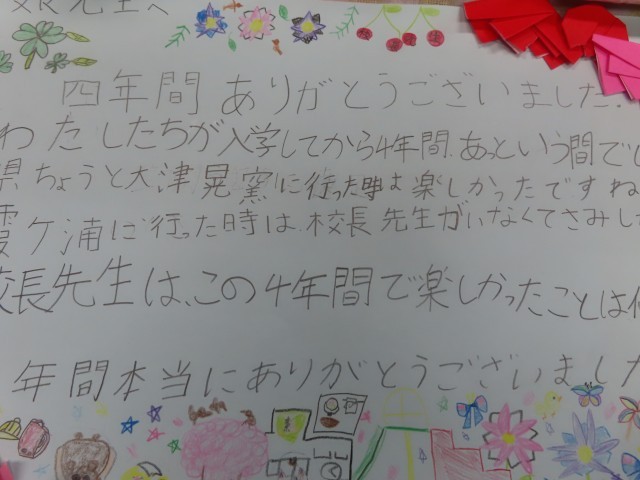 校長先生へ
四年間ありがとうございました
わたしたちが入学してから4年間、あっという間でし
県ちょうと大津晃窯に行った時は楽しかったですね
霞ケ浦に行った時は、校長先生がいなくてさみし
校長先生は、この4年間で楽しかったことは何
年間本当にありがとうございました